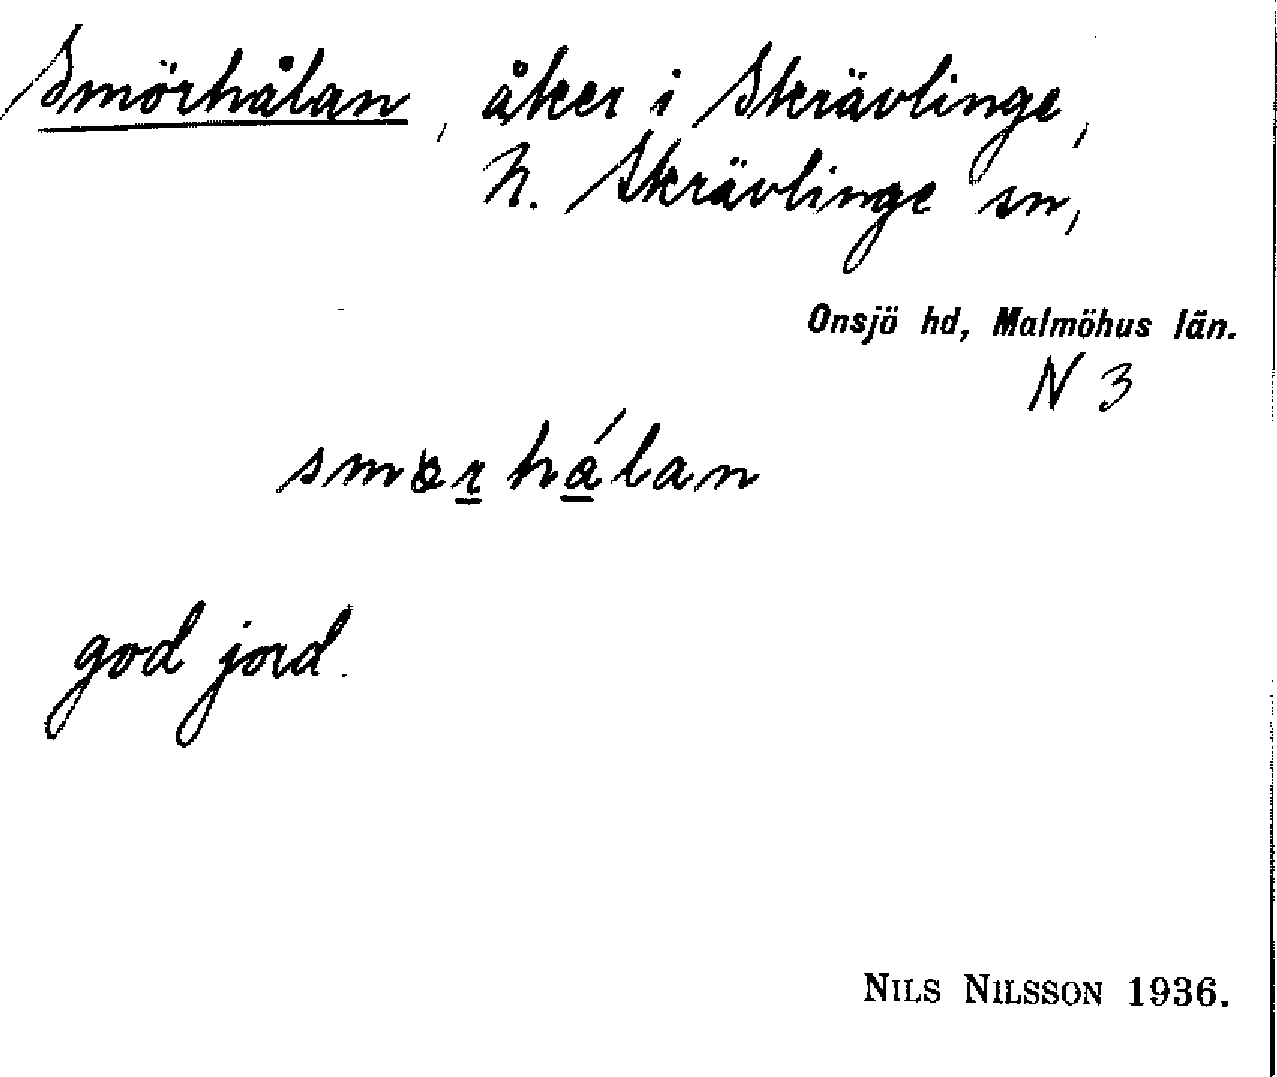 Smörhålan, åker i Skrävlinge,
N. Skrävlinge sn,
Onsjö hd, Malmöhus län.
N 3
smɵr hálan
god jord.
NILS NILSSON 1936.